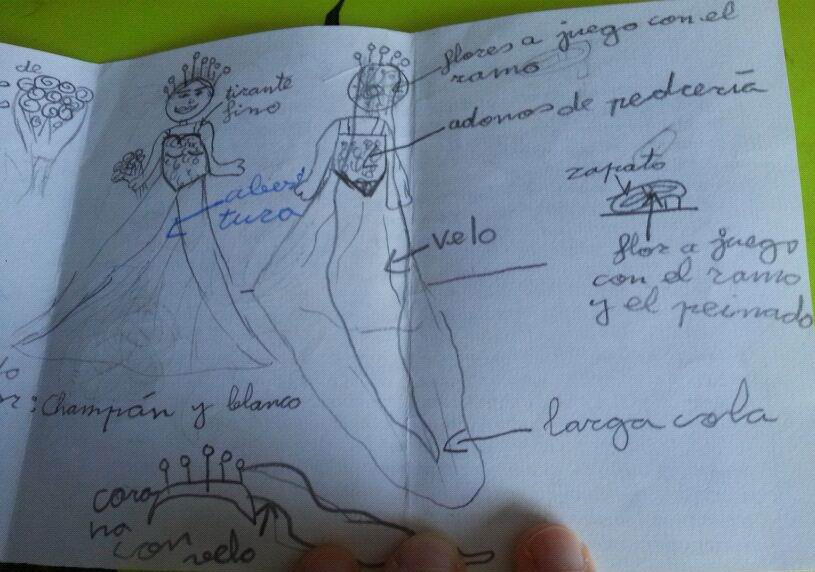 de
tirante
fino
flores a juego con el
ramo
adornos de pedrería
zapato
flor a juego
con el ramo
y el peinado
aber
tura
velo
larga cola
Champán y blanco
coro
na
con
velo